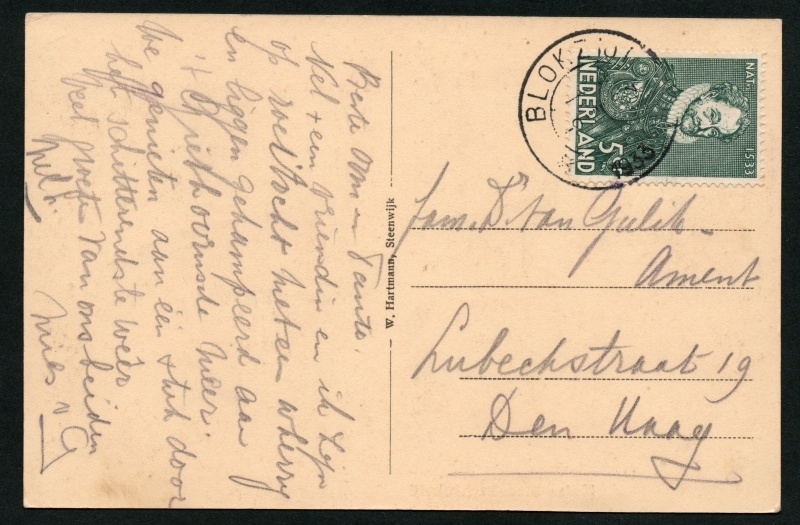 Beste Oom en Tante.
Nel + een vriendin en ik zijn
op roeitocht met een wherry
en liggen gekampeerd aan
't Giethoornsche Meer.
We genieten aan één stuk door
het schitterendste weer
Veel groeten van ons beiden
Nel. Mies v G
W. Hartmann, Steenwijk
BLOKZIJL
1933
NEDERLAND
5
NAT.
1533
Fam. Dr van Gulik-
Ament
Lubeckstraat 19
Den Haag